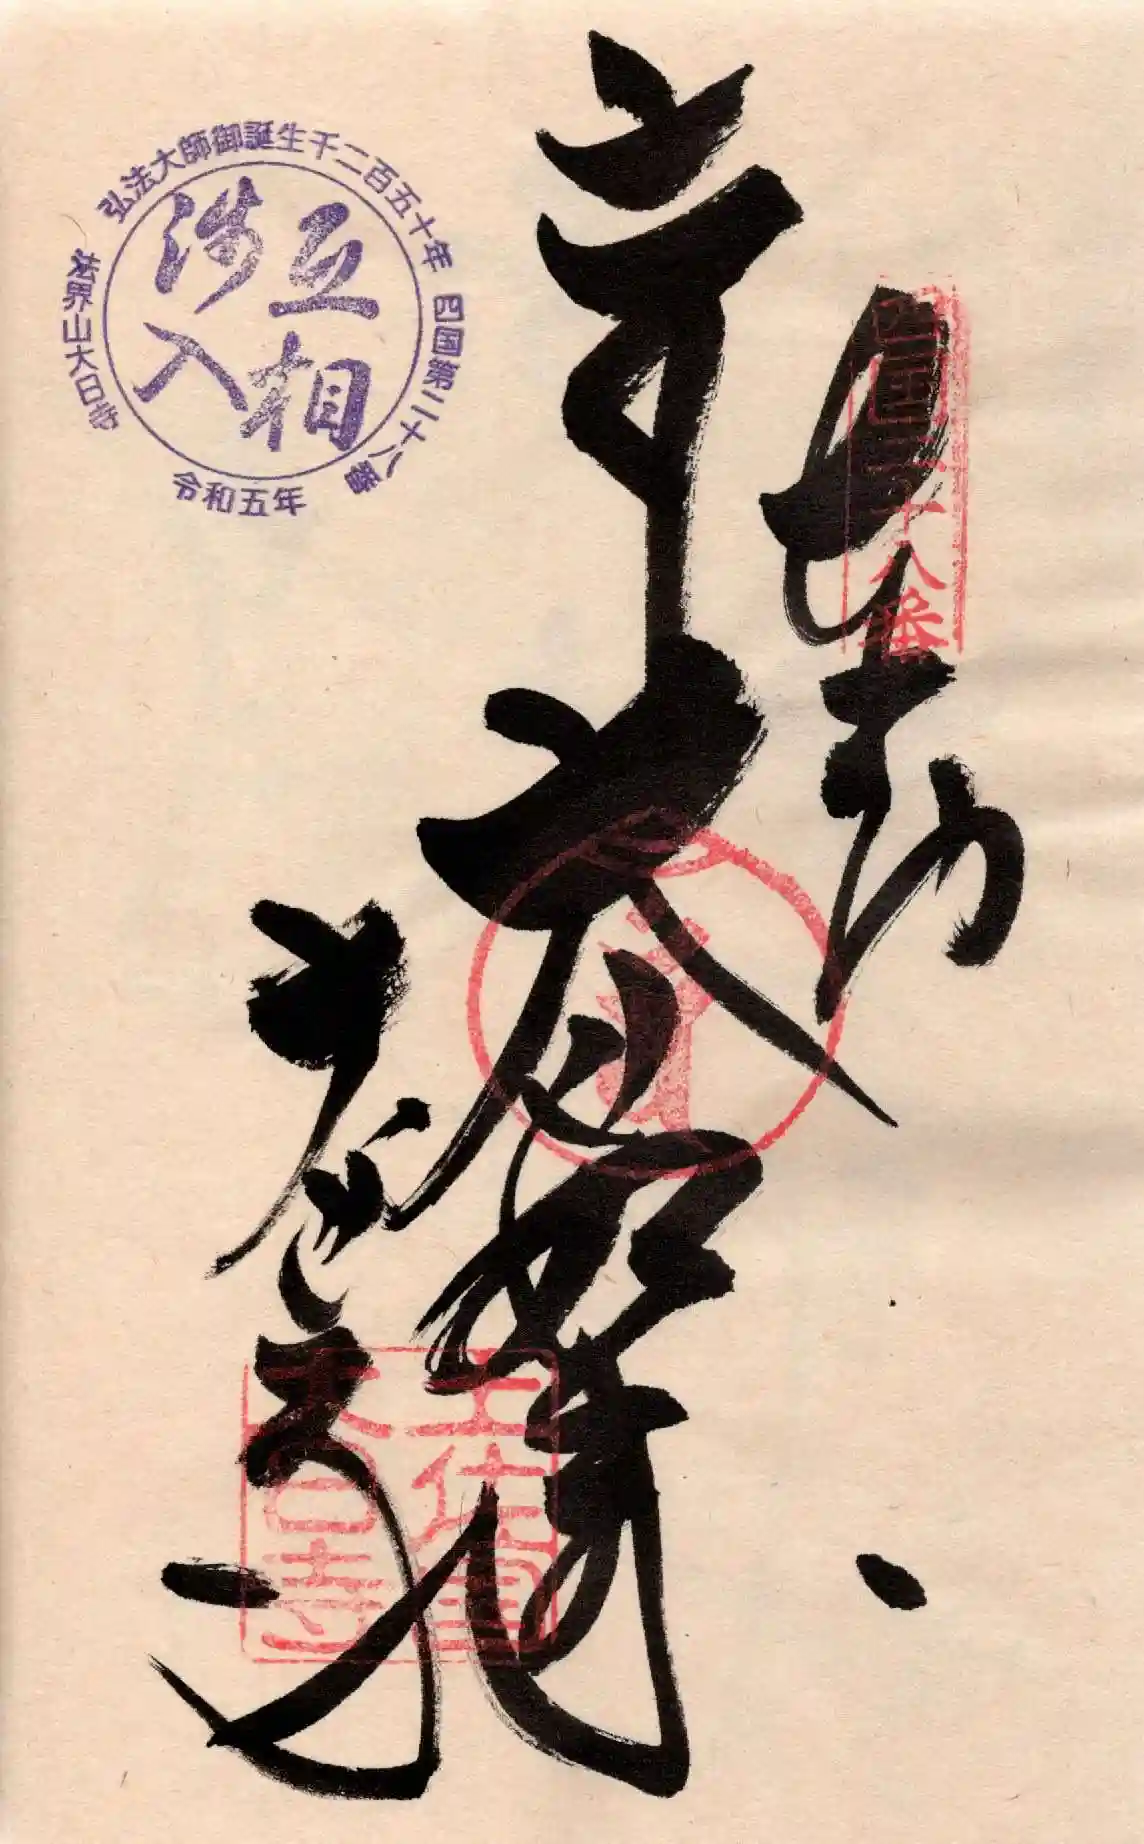 四国二十八番
大日如来
大日寺
弘法大師御誕生千二百五十年
四国第二十八番
法界山大日寺
令和五年
互相
渉入
大日寺